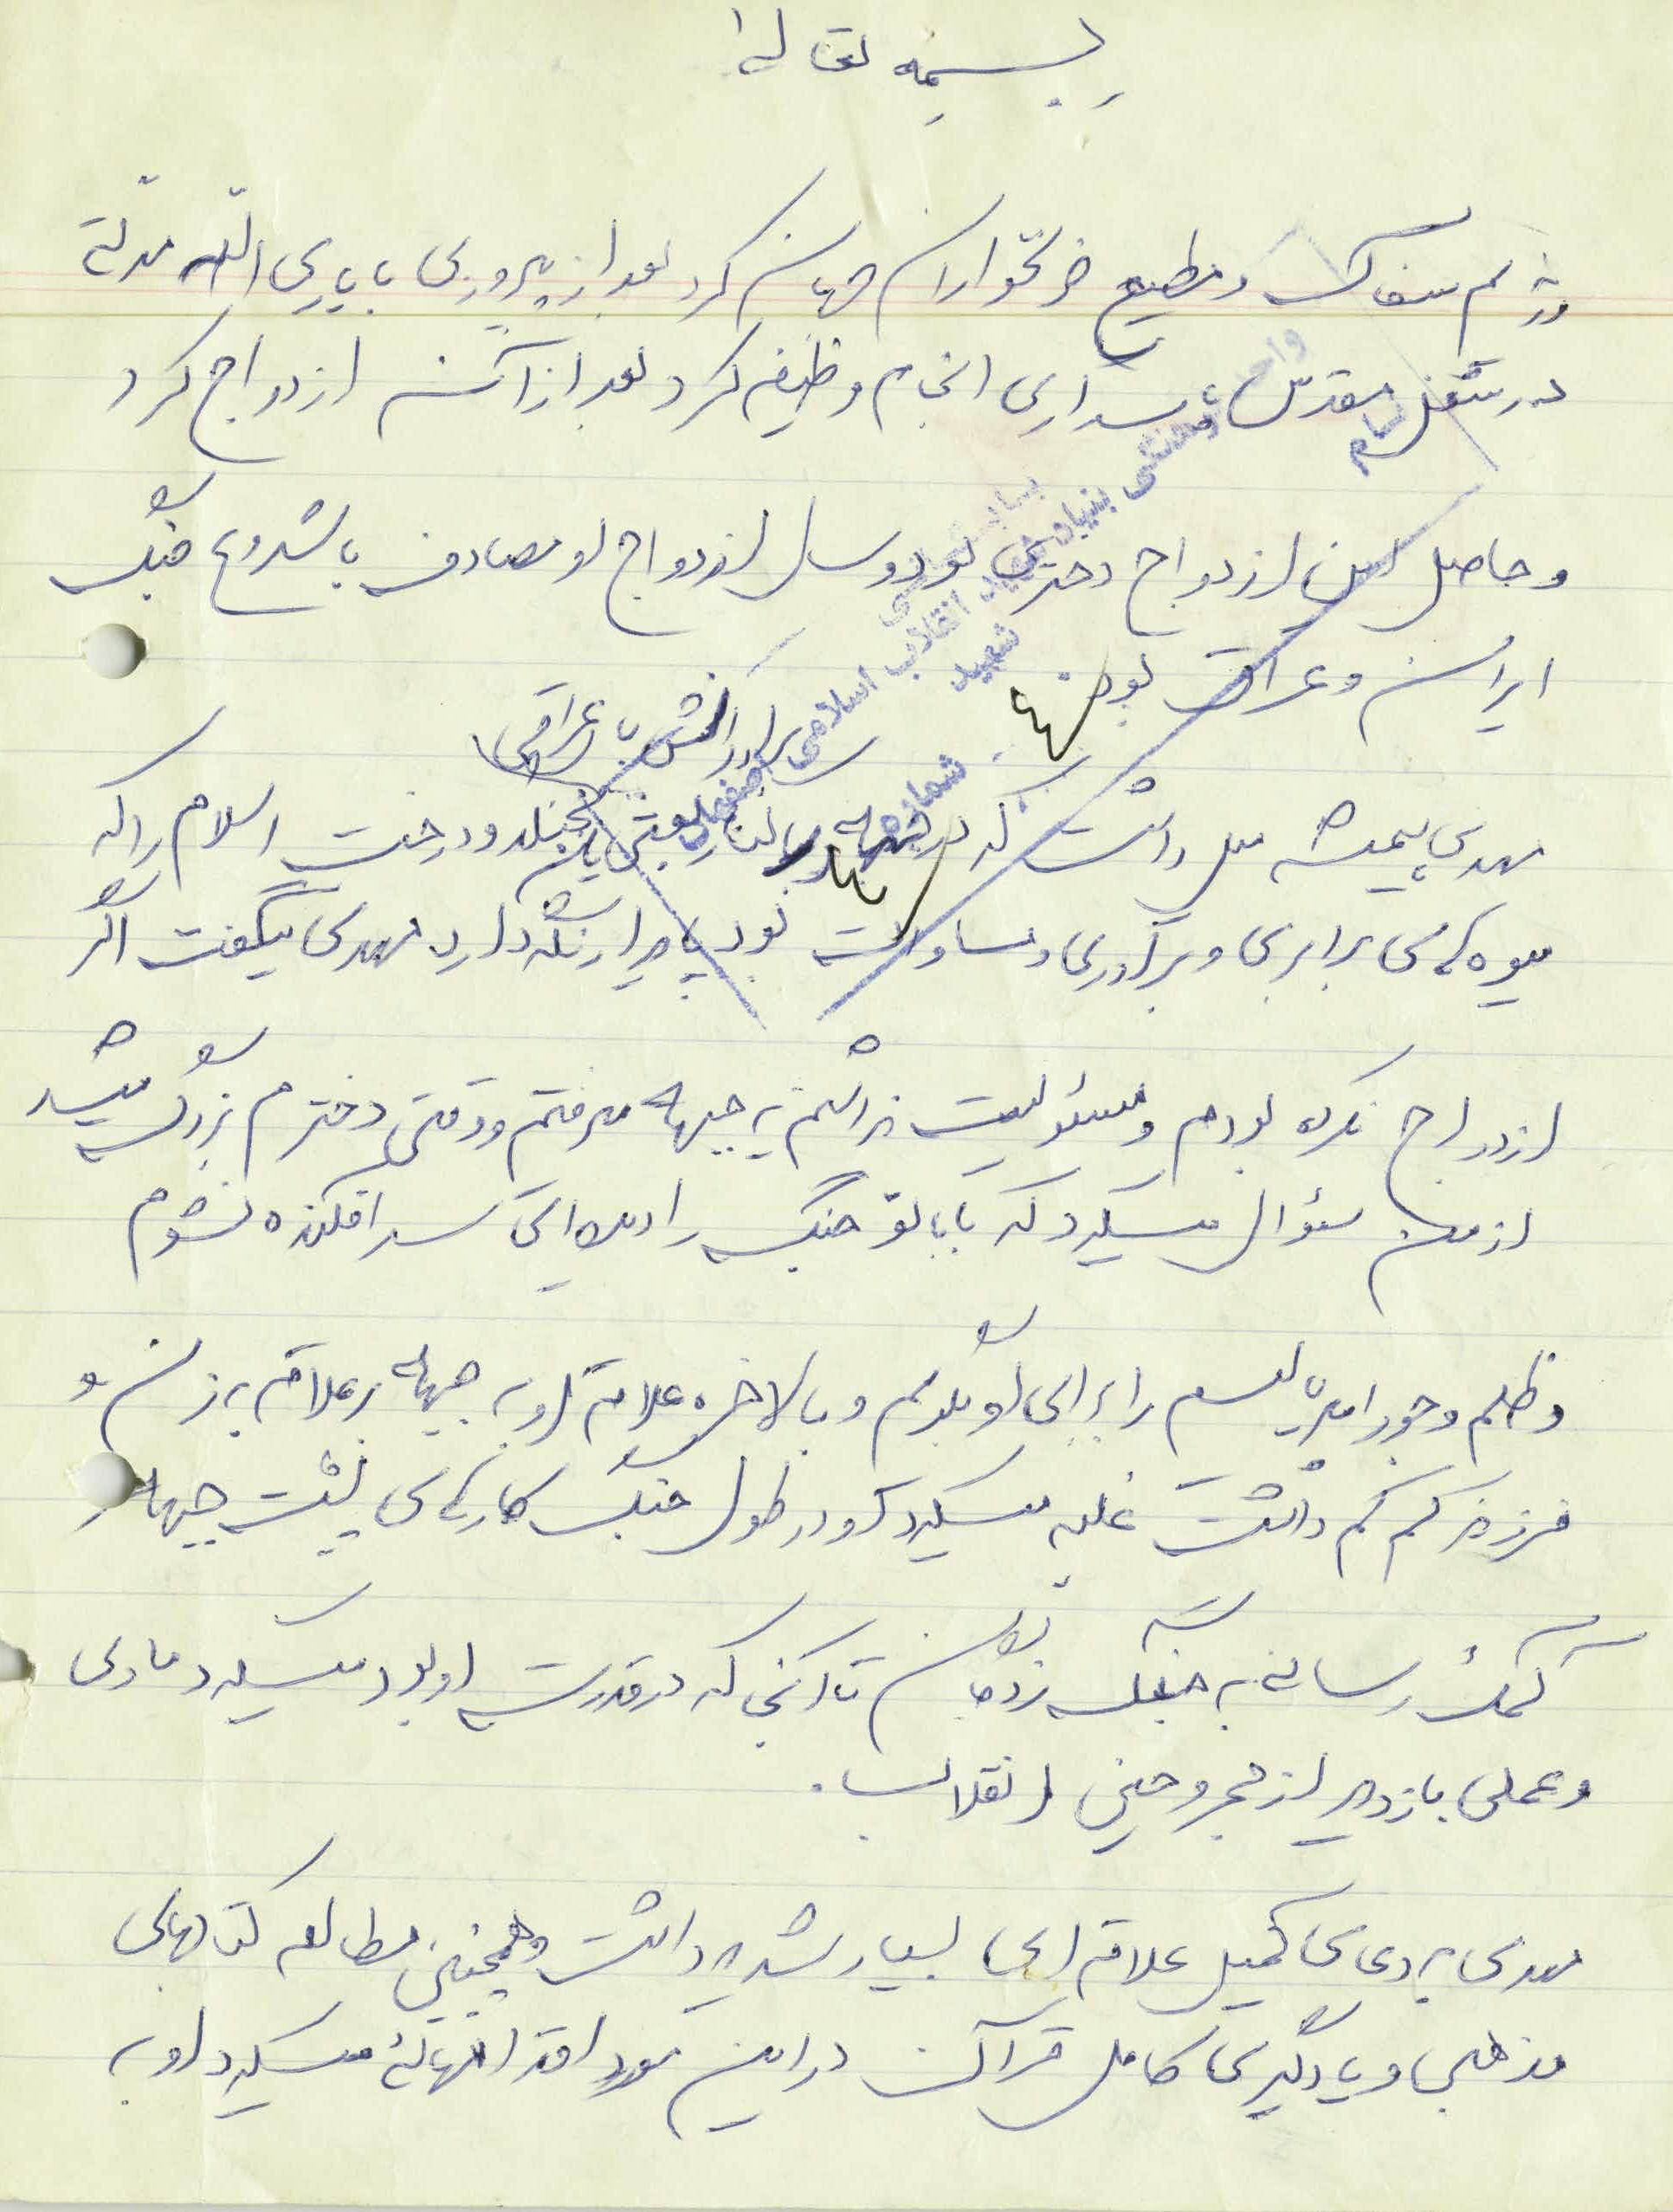 بسمه تعالی
رژیم سفاک و مطیع جهانخواران جهان کرد بعد از پیروزی با یاری الله مدتی
در شغل مقدس پاسداری انجام وظیفه کرد بعد از آن ازدواج کرد
و حاصل این ازدواج دختری بود و سال ازدواج او مصادف با شروع جنگ
ایران و عراق بود.
مهدی همیشه میل داشت که در جبهه در کنار برادرانش با عراقی بجنگد و درخت اسلام را که
میوه های برابری و برادری و مساوات بود پا برا نگه دارد مهدی میگفت اگر
ازدواج نکرده بودم و مسئولیت نداشتم به جبهه میرفتم و وقتی دخترم بزرگ میشد
از من سئوال میکرد که بابا تو جنگ را دیده ای سرافکنده نشوم
و ظلم و جور امپریالیسم را برای او بگویم و بالاخره علاقه او به جبهه بر علاقه به زن و
فرزند کم کم داشت غلبه میکرد و در طول جنگ کارهای پشت جبهه
کمک رسانی به جنگ زدگان تا آنجا که در قدرت او بود میکرد مادی
و عملی بازدید از مجروحین انقلاب.
مهدی به دعای کمیل علاقه ای بسیار شدید داشت و همچنین مطالعه کتابهای
مذهبی و یادگیری کامل قرآن در این مورد اقداماتی میکرد او به
واحد پژوهشی بنیاد شهید انقلاب اسلامی اصفهان
نام
شهید
شماره